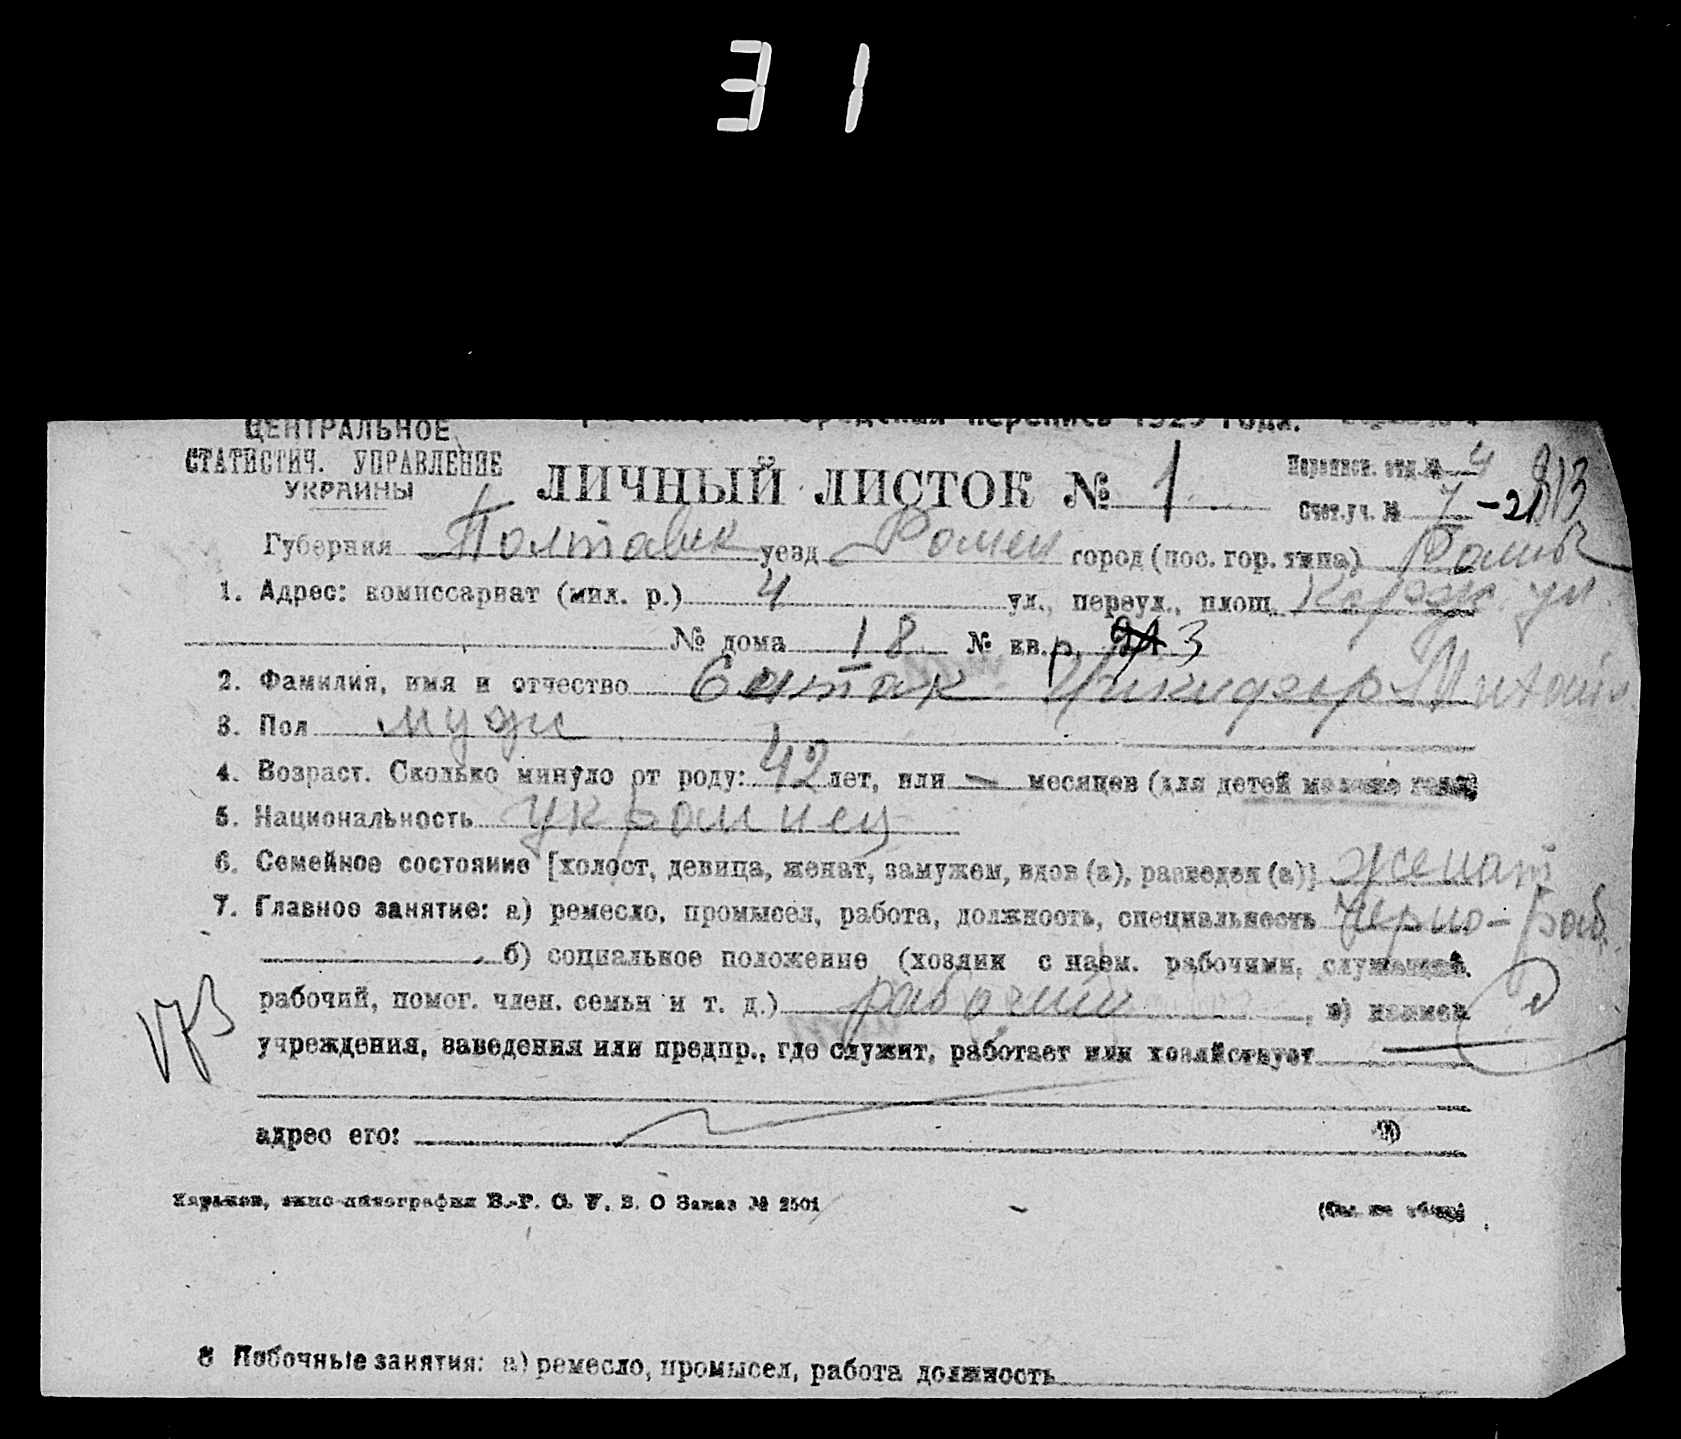 31
городская перепись 1923 года.
ЦЕНТРАЛЬНОЕ
СТАТИСТИЧ. УПРАВЛЕНИЕ
УКРАИНЫ
ЛИЧНЫЙ ЛИСТОК № 1
Переписн. отд. № 4
Счет. уч. № 7 - 21
Губерния Полтавск уезд Ромен город (пос. гор. типа) Ромны
1. Адрес: комиссариат (мил. р.) 4 ул., переул., площ. ул.
№ дома 18 № кв. р. 3
2. Фамилия, имя и отчество Никифор
3. Пол мужс
4. Возраст. Сколько минуло от роду: 42 лет, или — месяцев (для детей моложе года)
5. Национальность украинец
6. Семейное состояние [холост, девица, женат, замужем, вдов (а), разведен (а)] женат
7. Главное занятие: а) ремесло, промысел, работа, должность, специальность Черно-раб.
б) социальное положение (хозяин с наем. рабочими, служащий.
рабочий, помог. член. семьи и т. д.) рабочий, в) наимен.
учреждения, заведения или предпр., где служит, работает или хозяйствует
адрес его:
Харьков, типо-литография В.-Р. С. У. В. О Заказ № 2501
(См. на обор.)
8 Побочные занятия: а) ремесло, промысел, работа должность